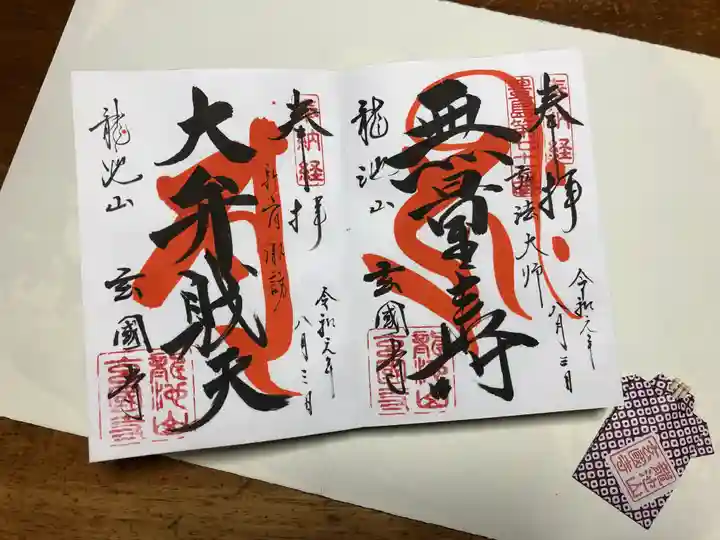 奉拝
弘法大師
令和元年
八月三日
無量寿
龍池山
玄國寺
奉納経
龍池山
玄國寺
奉拝
新宿諏訪
令和元年
八月三日
大弁財天
龍池山
玄國寺
奉納経
龍池山
玄國寺
龍池山
玄國寺